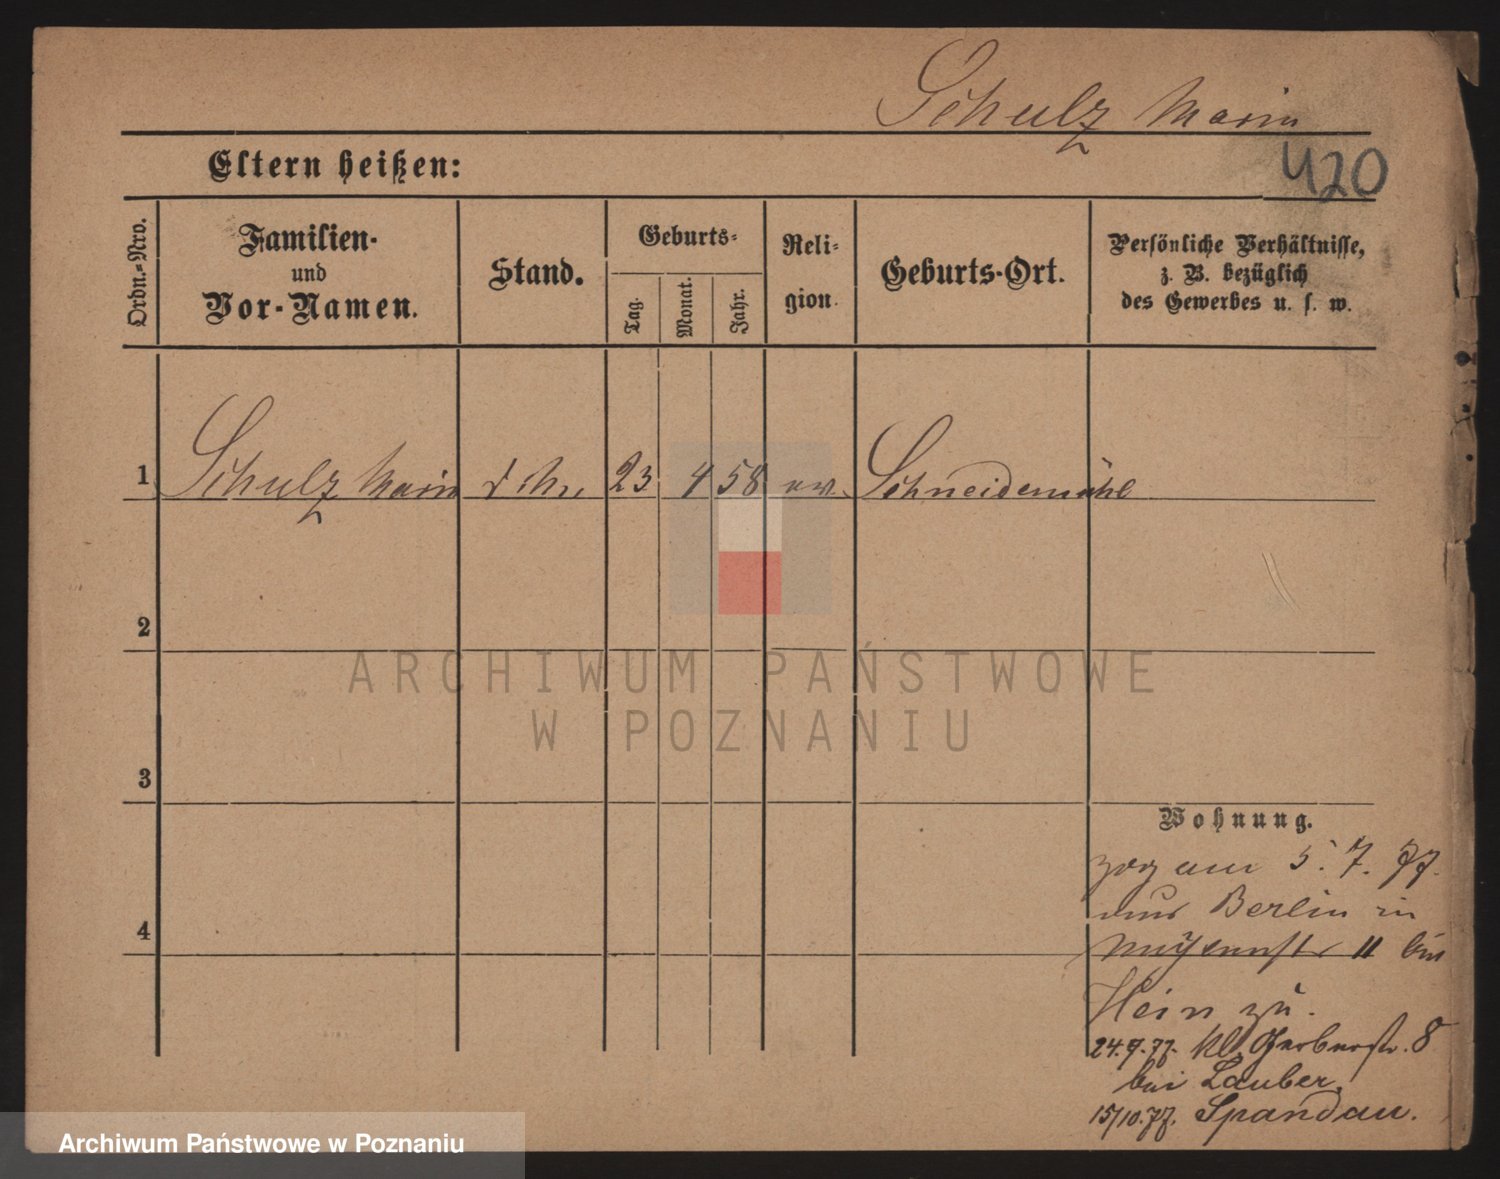 Schulz Marie
420
Eltern heißen:
Ordn.-Nro.
Familien-
und
Vor-Namen.
Stand.
Geburts-
Tag.
Monat.
Jahr.
Reli-
gion.
Geburts-Ort.
Persönliche Verhältnisse,
z. B. bezüglich
des Gewerbes u. s. w.
1 Schulz Marie 23 4 58 ev. Schneidemühl
2
ARCHIWUM PAŃSTWOWE
W POZNANIU
3
Wohnung.
zog am 5. 7. 77.
aus Berlin in
11 bei
Hein zu.
24.9.77. Kl. Gerberstr. 8
bei Lauber.
15/10.77. Spandau.
4
Archiwum Państwowe w Poznaniu